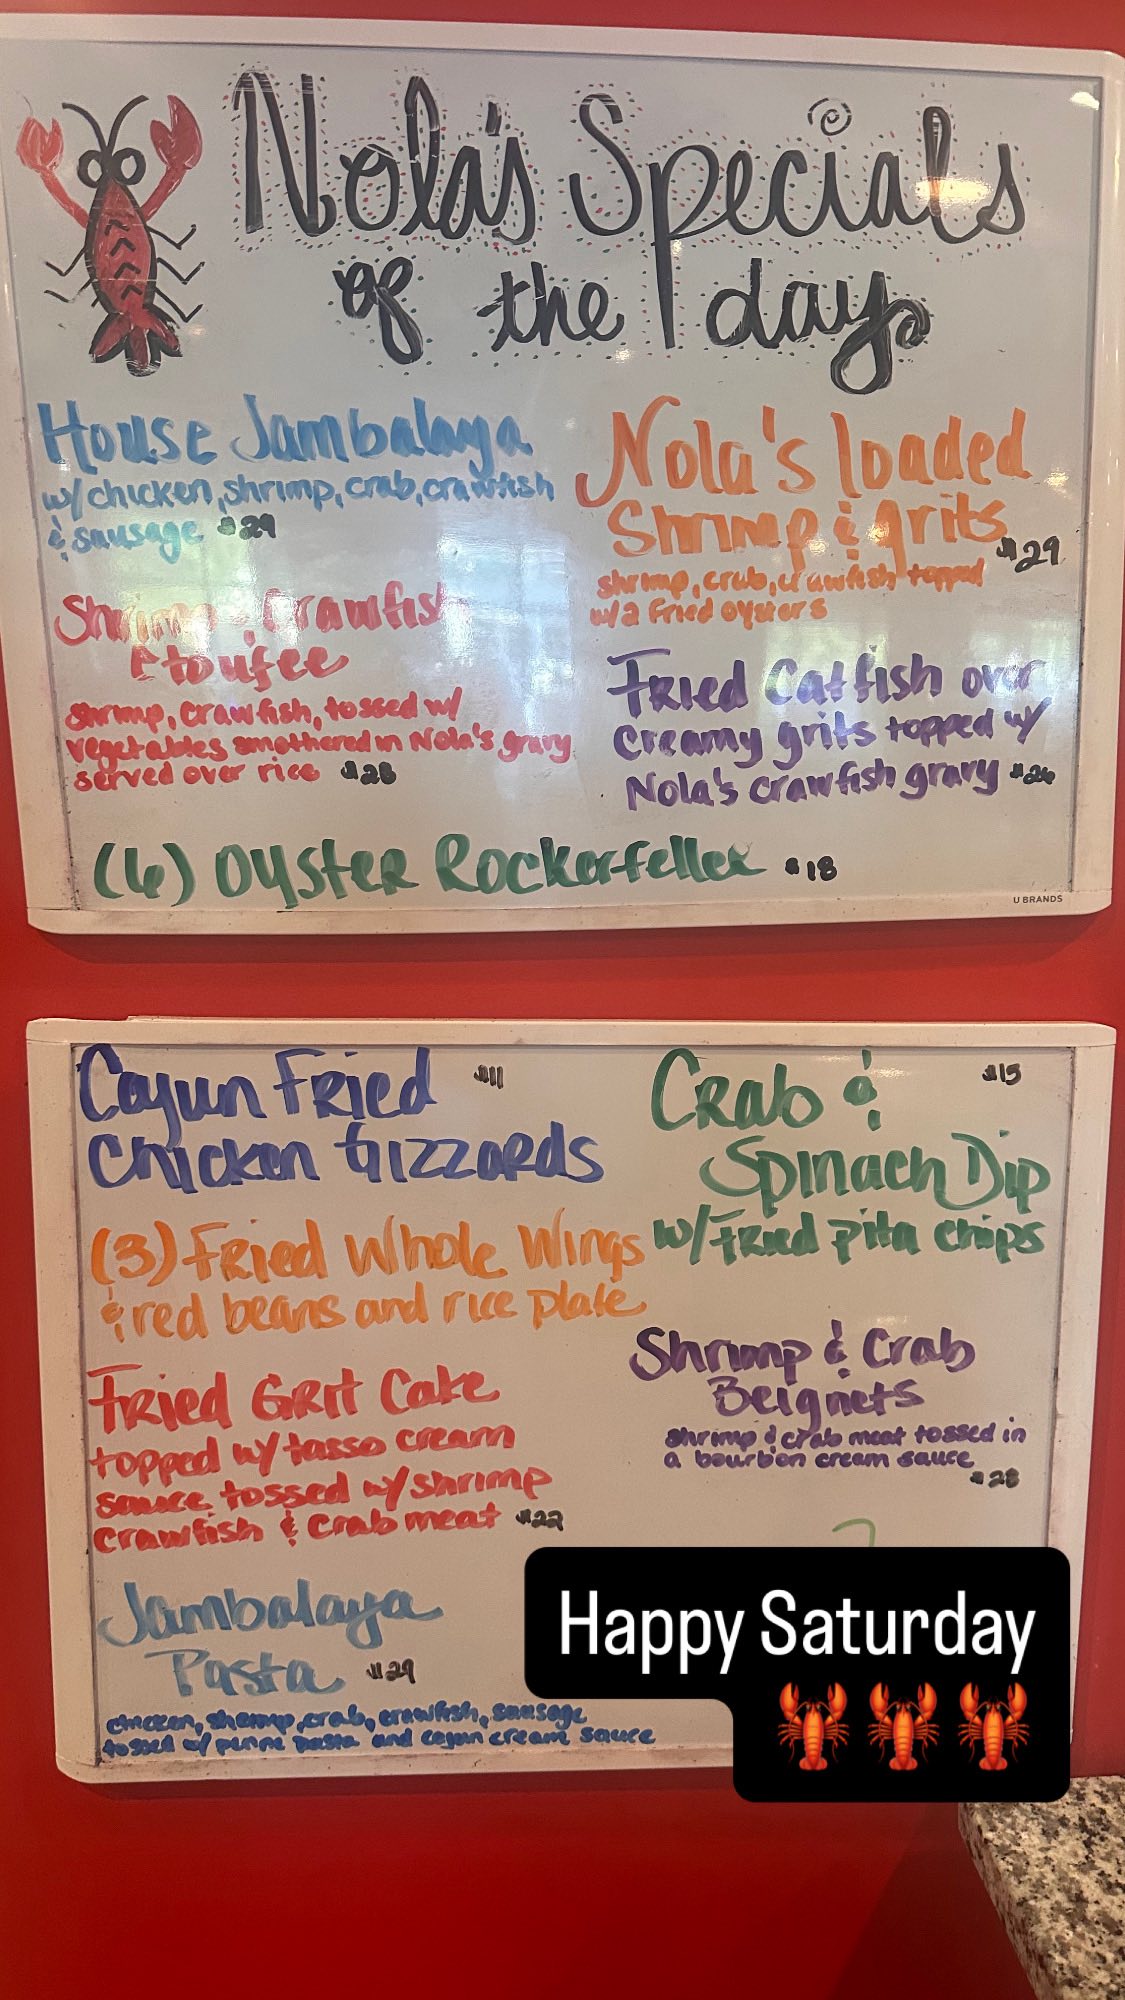 Nola's Specials
of the day
House Jambalaya
w/ chicken, shrimp, crab, crawfish
& sausage $29
Shrimp & Crawfish
Etoufee
shrimp, crawfish, tossed w/
vegetables smothered in Nola's gravy
served over rice $28
Nola's loaded
Shrimp & grits $29
shrimp, crab, crawfish topped
w/2 fried oysters
Fried Catfish over
Creamy grits topped w/
Nola's crawfish gravy $26
(6) Oyster Rockerfeller $18
U BRANDS
Cajun Fried $11
Chicken Gizzards
(3) Fried Whole Wings
& red beans and rice plate
Fried Grit Cake
topped w/ tasso cream
sauce tossed w/ shrimp
crawfish & Crab meat $22
Jambalaya
Pasta $29
chicken, shrimp, crab, crawfish, sausage
tossed w/ penne pasta and cajun cream sauce
Crab & $15
Spinach Dip
w/ fried pita chips
Shrimp & Crab
Beignets
shrimp & crab meat tossed in
a bourbon cream sauce
$28
Happy Saturday
🦞🦞🦞